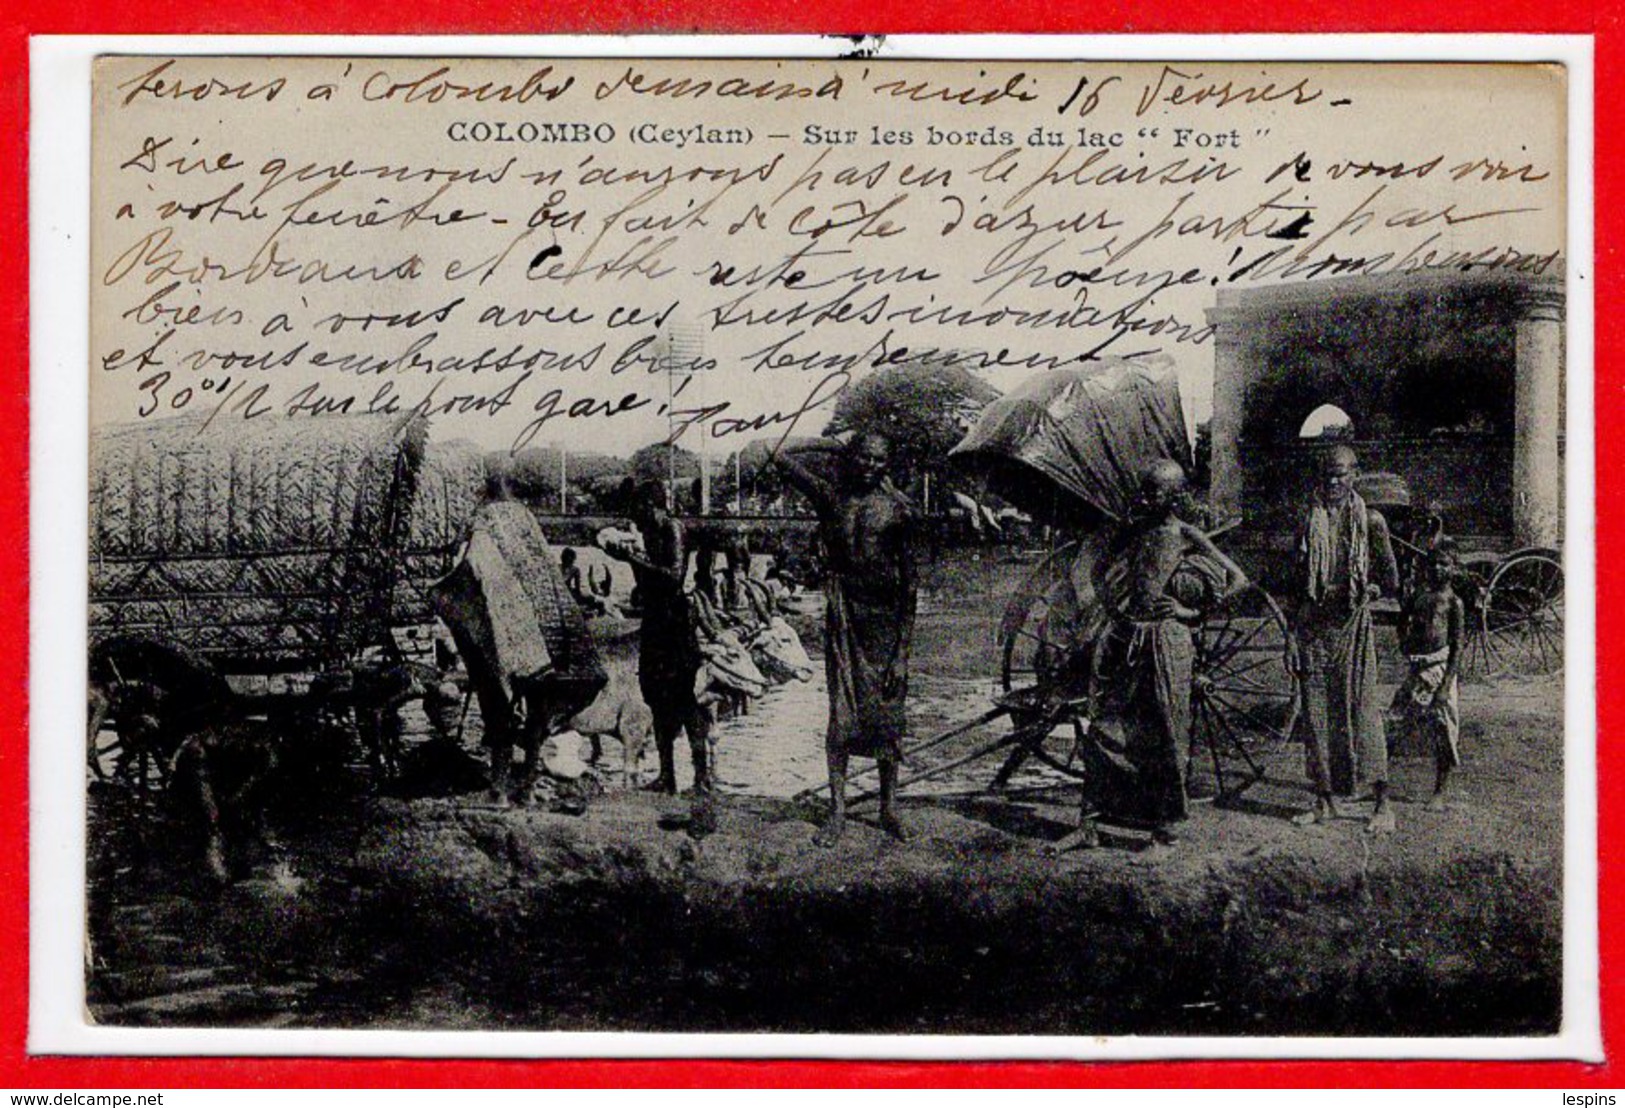 terons à Colombo demain à midi 16 Février -
COLOMBO (Ceylan) — Sur les bords du lac “ Fort ”
Dire que nous n'aurons pas eu le plaisir de vous voir
à votre fenêtre - En fait de Côte d'azur partir par
Bordeaux et Cette reste un ! Nous pensons
bien à vous avec ces tristes inondations
et vous embrassons bien tendrement -
30° 1/2 sur le pont gare ! Paul
delcampe.net
lespins